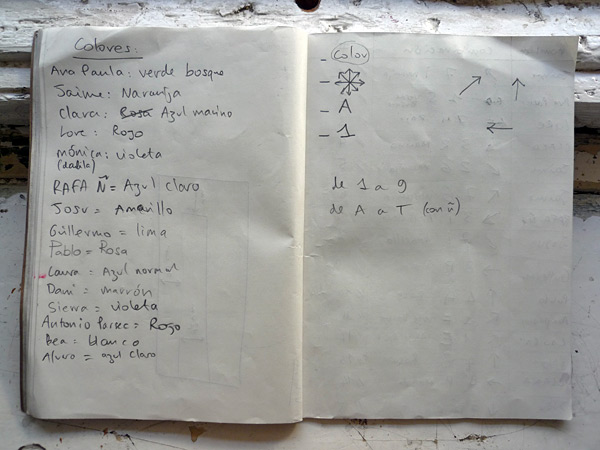 Colores:
Ana Paula: verde bosque
Jaime: Naranja
Clara: Rosa Azul marino
Love: Rojo
Mónica: violeta
(dalila)
RAFA Ñ = Azul claro
Josu = Amarillo
Guillermo = lima
Pablo = Rosa
Laura = Azul normal
Dani = marrón
Sierra = violeta
Antonio = Rojo
Bea = blanco
Alvaro = azul claro
- Color
-
- A
- 1
de 1 a 9
de A a T (con ñ)